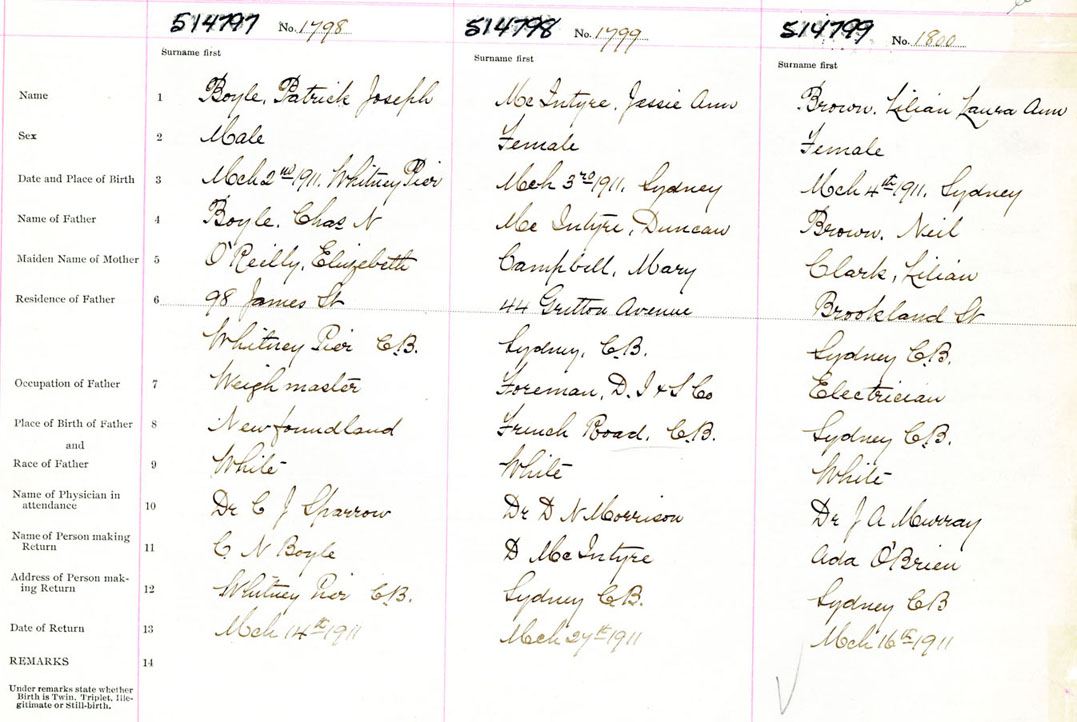 514797 No. 1798 514798 No. 1799 514799 No. 1800
Surname first Surname first Surname first
Name 1 Boyle, Patrick Joseph Mc Intyre, Jessie Ann Brown. Lilian Laura Ann
Sex 2 Male Female Female
Date and Place of Birth 3 Mch 2nd 1911. Whitney Pier Mch 3rd 1911. Sydney Mch 4th 1911. Sydney
Name of Father 4 Boyle. Chas N Mc Intyre, Duncan Brown. Neil
Maiden Name of Mother 5 O'Reilly, Elizebeth Campbell, Mary Clark, Lilian
Residence of Father 6 98 James St 44 Gritton Avenue Brookland St
Whitney Pier C.B. Sydney, C.B. Sydney C.B.
Occupation of Father 7 Weigh master Foreman, D. I & S Co Electrician
Place of Birth of Father 8 Newfoundland French Road, C.B. Sydney C.B.
and
Race of Father 9 White White White
Name of Physician in
attendance 10 Dr C J Sparrow Dr D N Morrison Dr J A Murray
Name of Person making
Return 11 C. N Boyle D McIntyre Ada O'Brien
Address of Person mak-
ing Return 12 Whitney Pier C.B. Sydney C.B. Sydney CB
Date of Return 13 Mch 14th 1911 Mch 27th 1911 Mch 16th 1911
REMARKS 14
Under remarks state whether
Birth is Twin, Triplet, Ille-
gitimate or Still-birth.